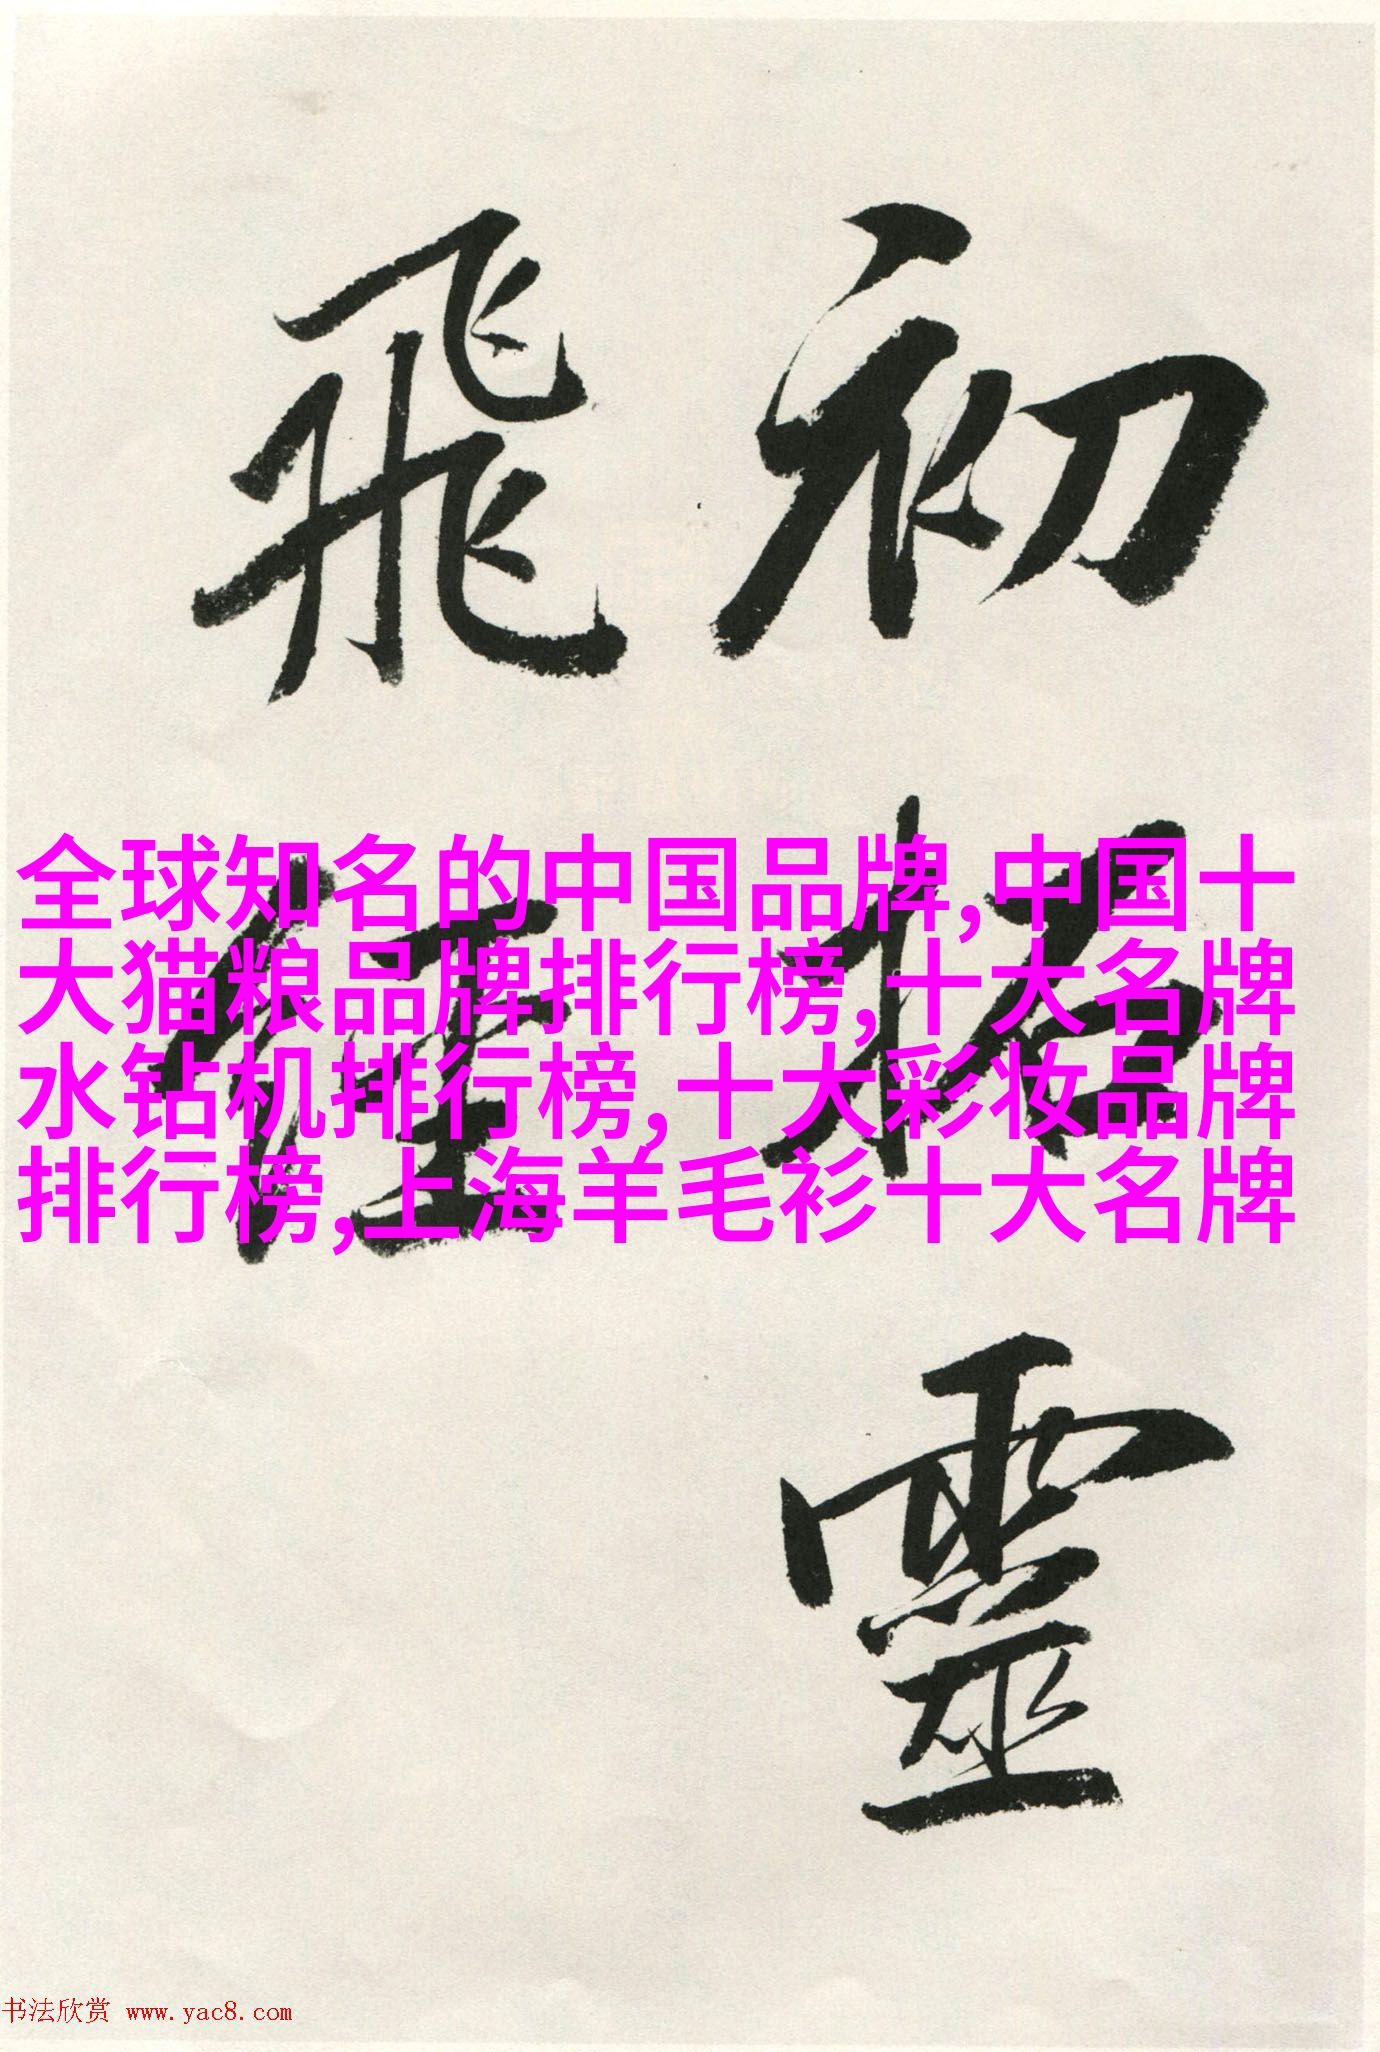 初拓靈
飛經
全球知名的中国品牌,中国十
大猫粮品牌排行榜,十大名牌
水钻机排行榜,十大彩妆品牌
排行榜,上海羊毛衫十大名牌
书法欣赏 www.yac8.com